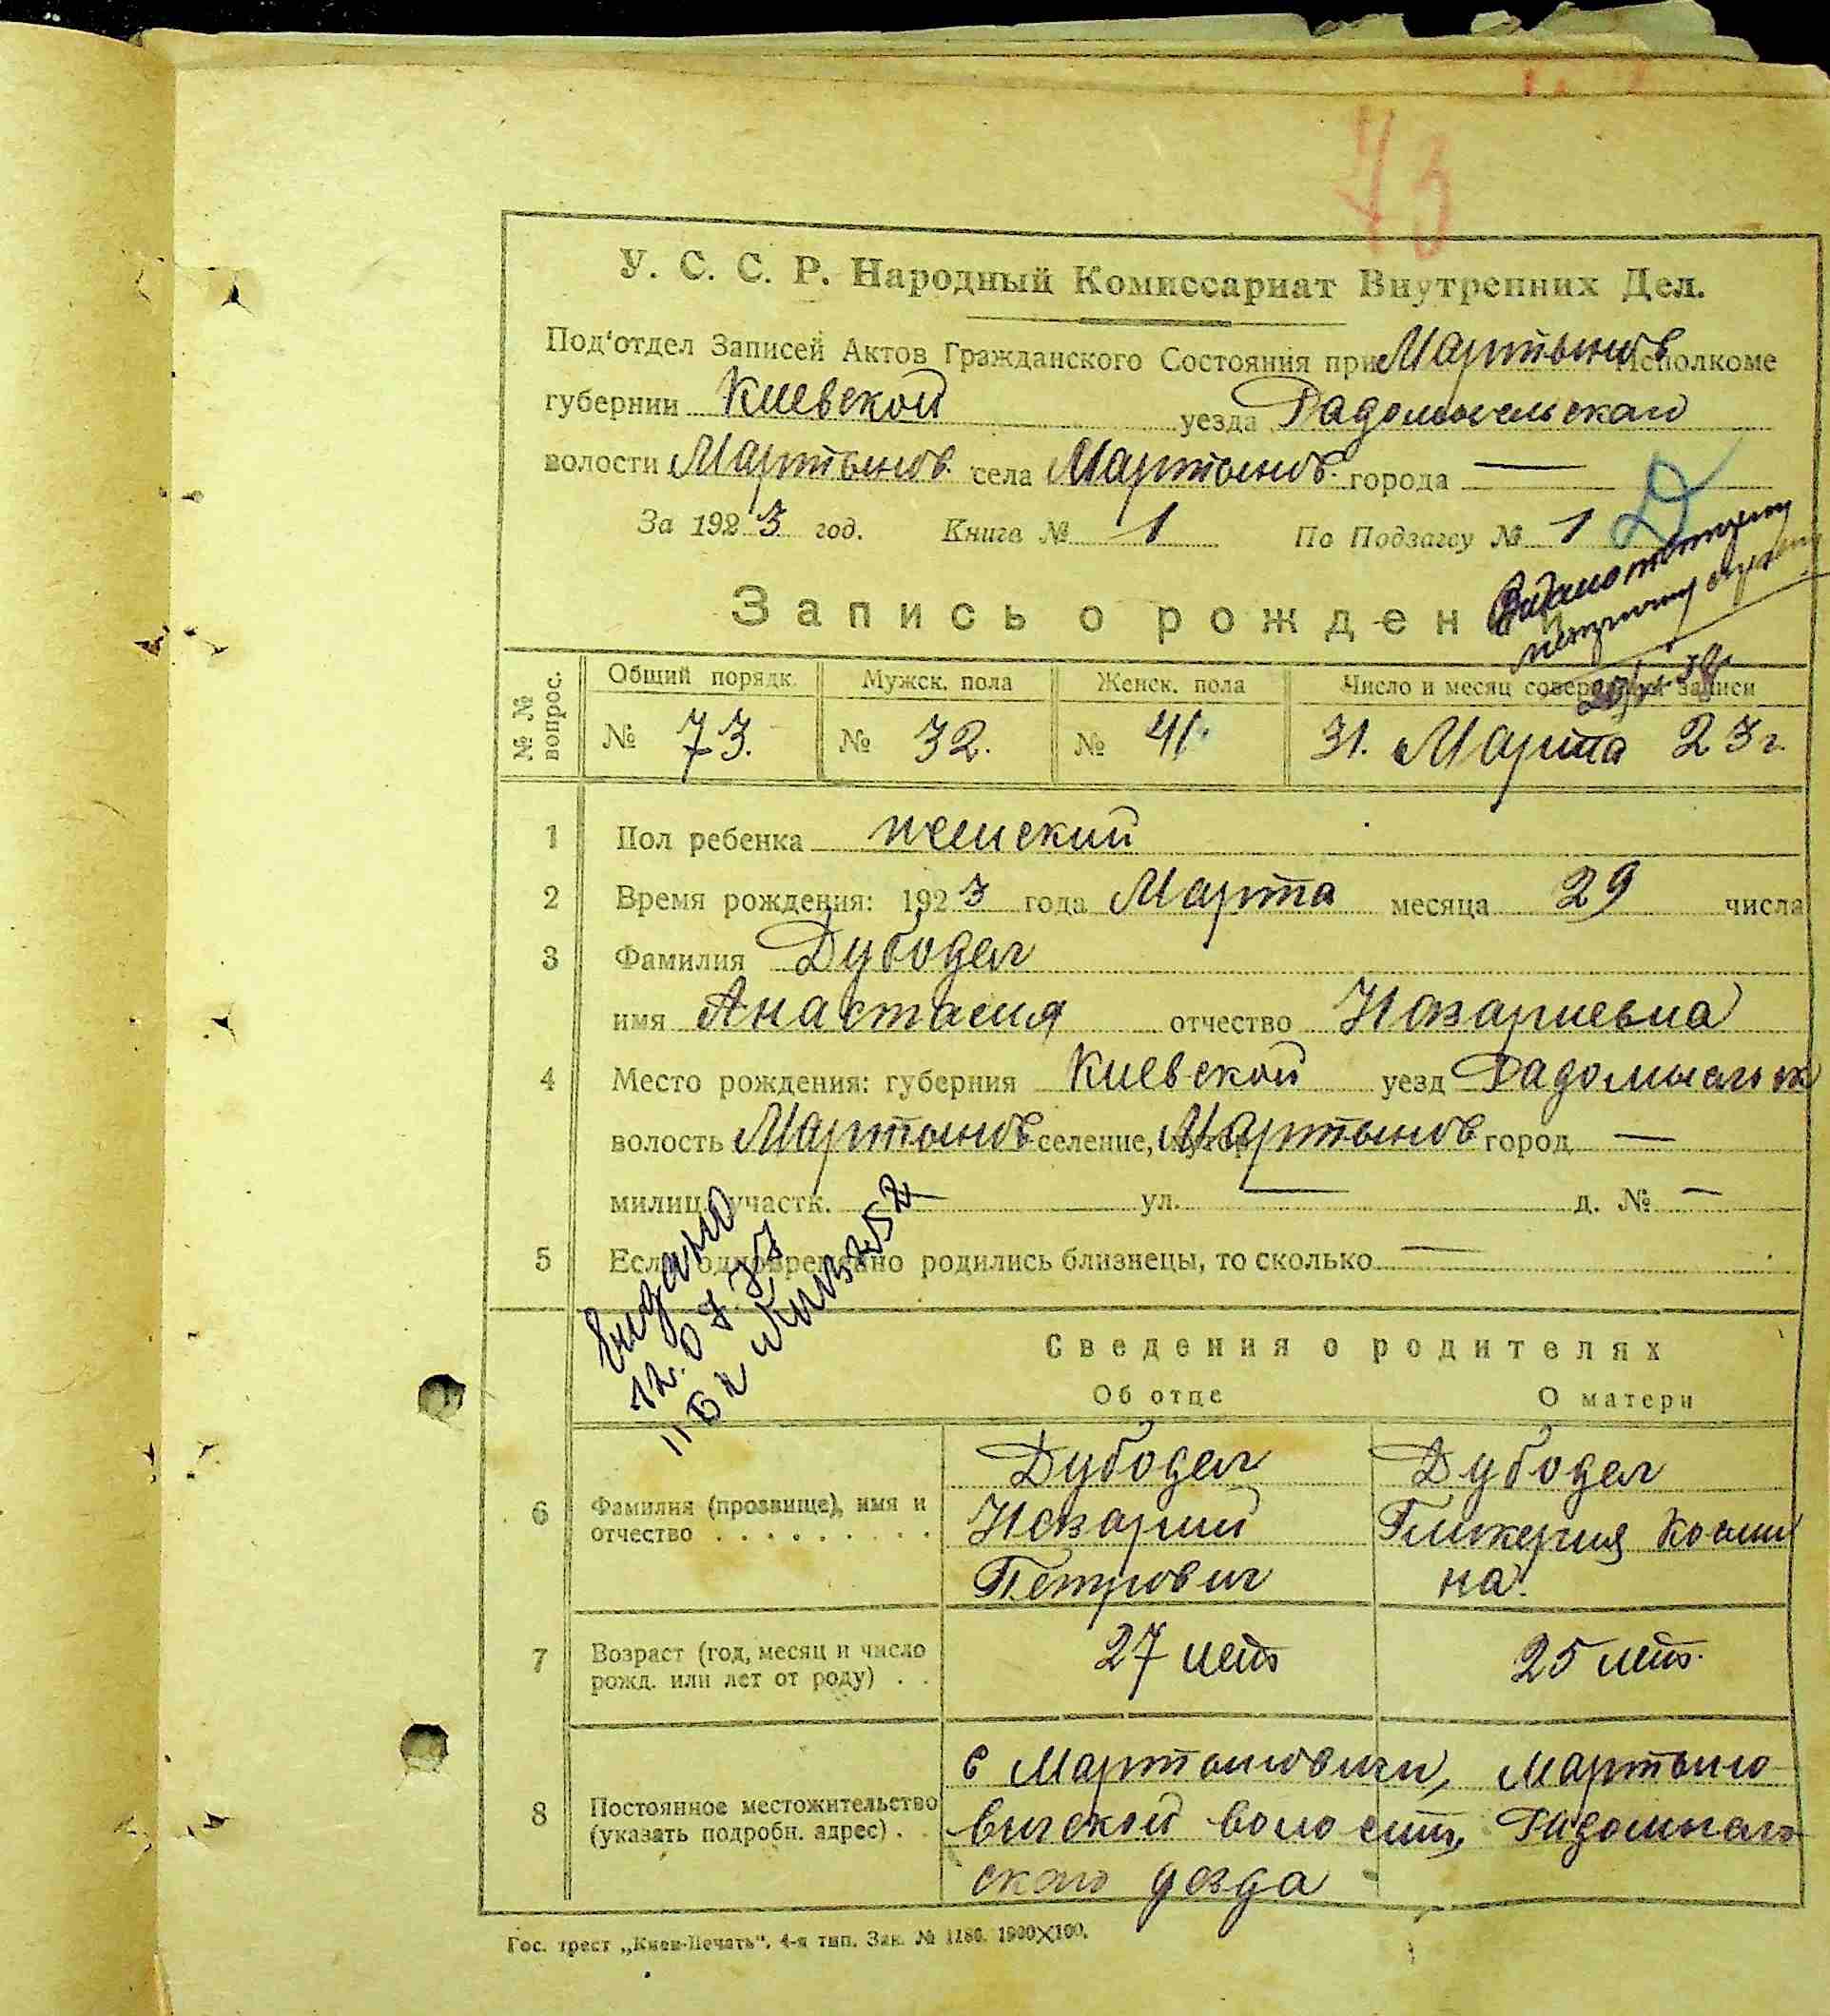 73
У. С. С. Р. Народный Комиссариат Внутренних Дел.
Под'отдел Записей Актов Гражданского Состояния при Мартынов Исполкоме
губернии Киевской уезда Радомысльскаго
волости Мартынов. села Мартынов. города —
За 1923 год. Книга № 1 По Подзагсу № 1
Запись о рождении
№ № вопрос. Общий порядк. Мужск. пола Женск. пола Число и месяц совершения записи
№ 73. № 32. № 41. 31. Марта 23 г.
1 Пол ребенка женский
2 Время рождения: 1923 года Марта месяца 29 числа
3 Фамилия Дубодел
имя Анастасия отчество Назариевна
4 Место рождения: губерния Киевской уезд Радомысльск
волость Мартынов селение, хутор Мартынов город —
милиц. участк. — ул. — д. № —
5 Если одновременно родились близнецы, то сколько —
видано
12.
Сведения о родителях
Об отце О матери
6 Фамилия (прозвище), имя и отчество Дубодел Дубодел
Назарий Гликерия Косми
Петрович на.
7 Возраст (год, месяц и число рожд. или лет от роду) 27 лет 25 лет.
8 Постоянное местожительство (указать подробн. адрес) с Мартыновичи, Мартыно-
вичской волости, Радомысль-
скаго уезда
Гос. трест „Киев-Печать". 4-я тип. Зак. № 1180. 1900×100.